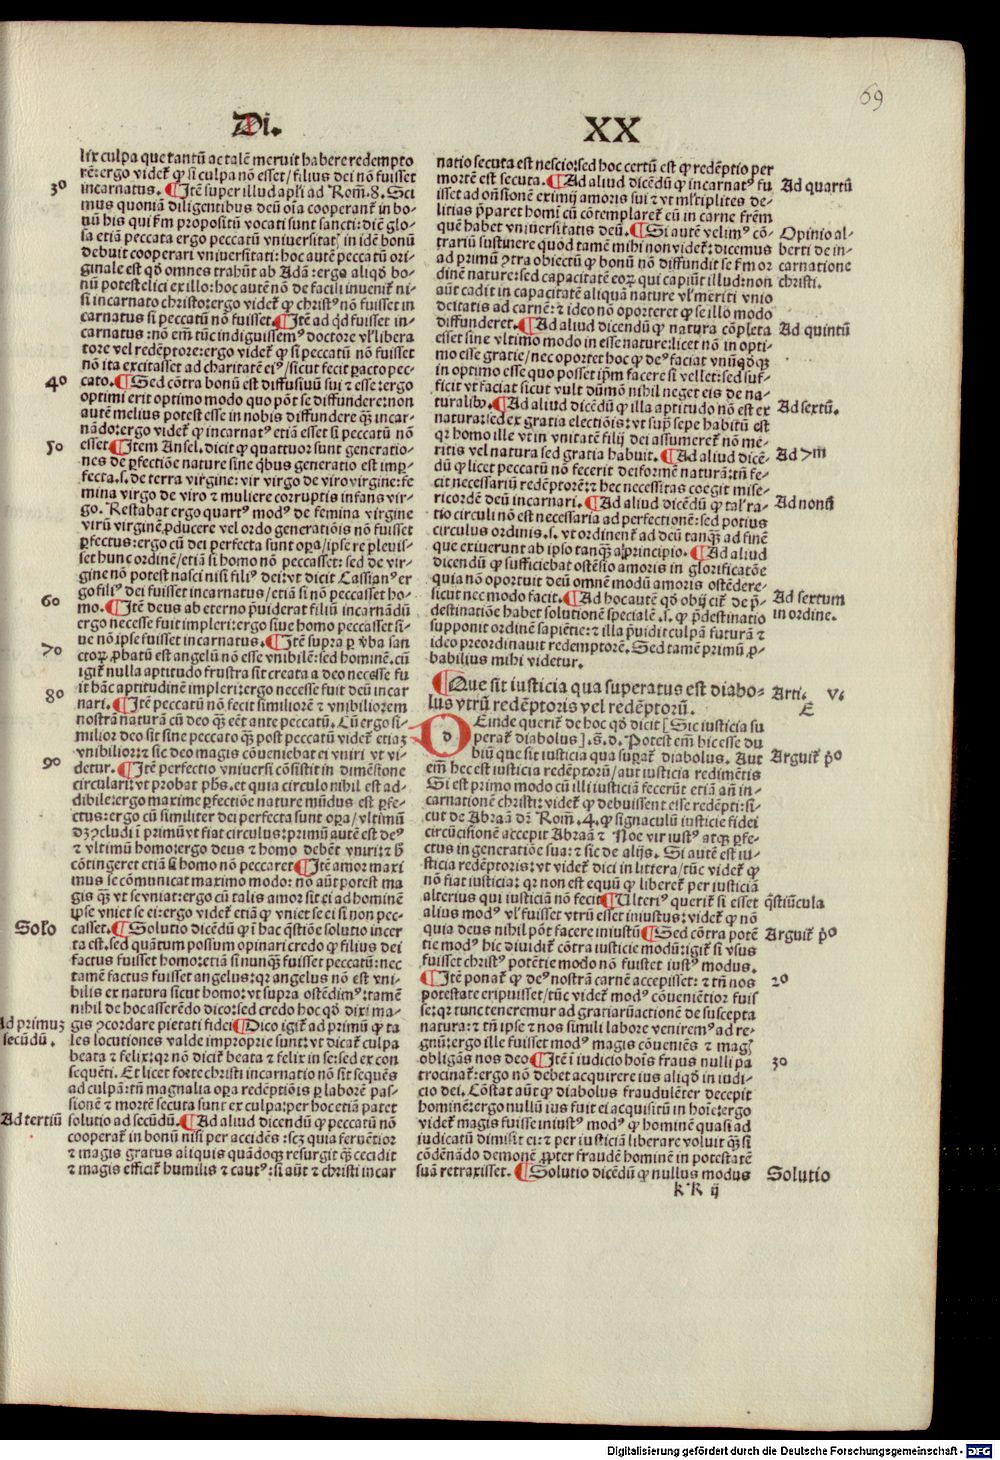 69
Di.
XX
lix culpa que tantū ac talē meruit habere redempto
rē: ergo videt̉ ꝙ si culpa nō esset / filius dei nō fuisset
3⁰
incarnatus. ¶ Itē super illud apl̉i ad Rom̄. 8. Sci
mus quoniā diligentibus deū oīa cooperant̉ in bo-
nū his qui km̄ propositū vocati sunt sancti: diē glo-
sa etiā peccata ergo peccatū vniversitat᷒ in idē bonū
debuit cooperari vniversitati: hoc autē peccatū ori-
ginale est qd̄ omnes trahūt ab Adā: ergo aliqd̄ bo-
nū potest elici ex illo: hoc autē nō de facili invenit̉ ni-
si incarnato christo: ergo videt̉ ꝙ christꝰ nō fuisset in
carnatus si peccatū nō fuisset. ¶ Itē ad qd̄ fuisset in-
carnatus: nō em̄ tūc indiguissemꝰ doctore vl̉ libera
tore vel redēptore: ergo videt̉ ꝙ si peccatū nō fuisset
nō ita excitasset ad charitatē ei᷒ / sicut fecit ꝑacto pec-
4⁰
cato. ¶ Sed cōtra bonū est diffusiuū sui ⁊ esse: ergo
optimi erit optimo modo quo pōt se diffundere: non
autē melius potest esse in nobis diffundere qꝫ incar-
nādo: ergo videt̉ ꝙ incarnatꝰ etiā esset si peccatū nō
5⁰
esset ¶ Item Ansel. dicit ꝙ quattuor sunt generatio-
nes de ꝑfectiōe nature sine qbus generatio est imꝑ-
fecta. s. de terra virgine: vir virgo de viro virgine: fe
mina virgo de viro ⁊ muliere corruptis infans vir-
go. Restabat ergo quartꝰ modꝰ de femina virgine
virū virginē ꝓducere vel ordo generatiōis nō fuisset
ꝑfectus: ergo cū dei perfecta sunt oꝑa / ipse repleuis-
set hunc ordinē / etiā si homo nō peccasset: sed de vir-
gine nō potest nasci nisi filiꝰ dei: vt dicit Cassianꝰ er
go filiꝰ dei fuisset incarnatus / etiā si nō peccasset ho-
6⁰
mo. ¶ Itē deus ab eterno p̄uiderat filiū incarnādū
ergo necesse fuit impleri: ergo siue homo peccasset si-
ue nō ipse fuisset incarnatus. ¶ Itē supra ꝑ v̉ba san
7⁰
ctoꝝ ꝓbatū est angelū nō esse vnibilē: sed hominē. cū
igit̉ nulla aptitudo frustra sit creata a deo necesse fu
it hāc aptitudinē impleri: ergo necesse fuit deū incar
8⁰
nari. ¶ Itē peccatū nō fecit similiorē ⁊ vnibiliorem
nostrā naturā cū deo qꝫ eēt ante peccatū. Cū ergo si-
milior deo sit sine peccato qꝫ post peccatū videt̉ etiaꝫ
vnibilior: ⁊ sic deo magis cōueniebat ei vniri vt vi-
9⁰
detur. ¶ Itē perfectio vniuersi cōsistit in dimēsione
circulari: vt probat ph̄s. et quia circulo nihil est ad-
dibile: ergo maxime ꝑfectiōe nature mūdus est ꝑfe-
ctus: ergo cū similiter dei perfecta sunt oꝑa / vltimū
dꝫ ꝯcludi ī primū vt fiat circulus: primū autē est deꝰ
⁊ vltimū homo: ergo deus ⁊ homo debēt vniri: ⁊ h̄
cōtingeret etiā si homo nō peccaret ¶ Itē amor maxi
mus se cōmunicat maximo modo: nō aūt potest ma
gis qꝫ vt se vniat: ergo cū talis amor sit ei ad hominē
ip̄se vniet se ei: ergo videt̉ etiā ꝙ vniet se ei si non pec-
Solo
casset. ¶ Solutio dicēdū ꝙ ī hac q̄stiōe solutio incer
ta est. sed quātum possum opinari credo ꝙ filius dei
factus fuisset homo: etiā si nunqꝫ fuisset peccatū: nec
tamē factus fuisset angelus: qꝛ angelus nō est vni-
bilis ex natura sicut homo: vt supra ostēdimꝰ: tamē
nihil de hoc asserēdo dico: sed credo hoc qd̄ dixi ma-
Ad primuꝫ
gis ꝯcordare pietati fidei ¶ Dico igit̉ ad primū ꝙ ta
secūdū.
les locutiones valde improprie sunt: vt dicat̉ culpa
beata ⁊ felix: qꝛ nō dicit̉ beata ⁊ felix in se: sed ex con
sequēti. Et licet forte christi incarnatio nō sit sequēs
ad culpā: tn̄ magnalia oꝑa redēptiōis ꝑ laborē pas-
sionē ⁊ mortē secuta sunt ex culpa: per hoc etiam patet
Ad tertiū
solutio ad secūdū. ¶ Ad aliud dicendū ꝙ peccatū nō
cooperat̉ in bonū nisi per accidēs: scꝫ quia feruētior
⁊ magis gratus aliquis quādoqꝫ resurgit qꝫ cecidit
⁊ magis efficit̉ humilis ⁊ cautꝰ: si aūt ⁊ christi incar
natio secuta est nescio: sed hoc certū est ꝙ redēptio per
mortē est secuta. ¶ Ad aliud dicēdū ꝙ incarnatꝰ fu
Ad quartū
isset ad oñsionē eximij amoris sui ⁊ vt ml̉tiplites de-
litias p̄paret homi cū cōtemplaret̉ eū in carne fr̄em
quē habet vniuersitatis deū. ¶ Si autē velimꝰ cō-
Opinio al-
trariū sustinere quod tamē mihi non videt̉: dicemus
berti de in-
ad primū ꝯtra obiectū ꝙ bonū nō diffundit se km̄ or
carnatione
dinē nature: sed capacitatē eoꝝ qui capiūt illud: non
christi.
aūt cadit in capacitatē aliquā nature vl̉ meriti vnio
deitatis ad carnē: ⁊ ideo nō oporteret ꝙ se illo modo
diffunderet. ¶ Ad aliud dicendū ꝙ natura cōpleta
Ad quintū
esset sine vltimo modo in esse nature: licet nō in opti-
mo esse gratie / nec oportet hoc ꝙ deꝰ faciat vnūqd̄qꝫ
in optimo esse quo posset ip̄m facere si vellet: sed suf-
ficit vt faciat sicut vult dūmō nihil neget eis de na-
turalibꝰ. ¶ Ad aliud dicēdū ꝙ illa aptitudo nō est ex
Ad sextū.
natura: sed ex gratia electiōis: vt supͣ sepe habitū est
qꝛ homo ille vt in vnitatē filij dei assumeret̉ nō me-
ritis vel natura sed gratia habuit. ¶ Ad aliud dicē-
Ad 7m̄
dū ꝙ licet peccatū nō fecerit deiformē naturā: tn̄ fe-
cit necessariū redēptorē: ⁊ hec necessitas coegit mise-
ricordē deū incarnari. ¶ Ad aliud dicēdū ꝙ tal̉ ra-
Ad nonū
tio circuli nō est necessaria ad perfectionē: sed potius
circulus ordinis. s. vt ordinent̉ ad deū tanqꝫ ad finē
que exiuerunt ab ipso tanqꝫ a principio. ¶ Ad aliud
dicendū ꝙ sufficiebat ostēsio amoris in glorificatōe
quia nōn oportuit deū omnē modū amoris ostēdere-
sicut nec modo facit. ¶ Ad hoc autē qd̄ obijcit̉ de p̄-
Ad sextum
destinatiōe habet solutionē specialē. s. ꝙ p̄destinatio
in ordine.
supponit ordinē sapiētie: ⁊ illa p̄uidit culpā futurā ⁊
ideo preordinauit redemptorē. Sed tamē primū ꝓ-
babilius mihi videtur.
¶ Que sit iusticia qua superatus est diabo-
Arti. V.
lus vtrū redēptoris vel redēptorū.
E
DEinde querit̉ de hoc qd̄ dicit [Sic iusticia su
perat̉ diabolus]. S. d. Potest em̄ hic esse du
biū que sit iusticia qua suꝑat̉ diabolus. Aut
Arguit̉ p̄º
em̄ hec est iusticia redēptorū / aut iusticia redimētis
Si est primo modo cū illi iusticiā fecerūt etiā añ in-
carnationē christi: videt̉ ꝙ debuissent esse redēpti: si-
cut de Abraā dr̄ Rom̄. 4. ꝙ signaculū iusticie fidei
circūcisionē accepit Abraā ⁊ Noe vir iustꝰ atqꝫ ꝑfe-
ctus in generatiōe sua: ⁊ sic de alijs. Si autē est iu-
sticia redēptoris: vt videt̉ dici in littera / tūc videt̉ ꝙ
nō fiat iusticia: qꝛ non est equū ꝙ liberet̉ per iusticiā
alterius qui iusticiā nō fecit ¶ Ulteriꝰ querit̉ si esset
q̄stiūcula
alius modꝰ vl̉ fuisset vtrū esset iniustus: videt̉ ꝙ nō
quia deus nihil pōt facere iniustū ¶ Sed cōtra potē
Arguit̉ p̄º
tie modꝰ hic diuidit̉ cōtra iusticie modū: igit̉ si vsus
fuisset christꝰ potētie modo nō fuisset iustꝰ modus.
¶ Itē ponat̉ ꝙ deꝰ nostrā carnē accepisset: ⁊ tn̄ nos
2⁰
potestate eripuisset / tūc videt̉ modꝰ cōueniētior fuis
se: qꝛ tunc teneremur ad gratiaꝝ actionē de suscepta
natura: ⁊ tn̄ ipse ⁊ nos simili labore venirem᷒ ad re-
gnū: ergo ille fuisset modꝰ magis cōueniēs ⁊ mag᷒
obligās nos deo ¶ Itē ī iudicio hoīs fraus nulli pa
3⁰
trocinat̉: ergo nō debet acquirere ius aliqd̄ in iudi-
cio dei. Cōstat aūt ꝙ diabolus fraudulēter decepit
hominē: ergo nullū ius fuit ei acquisitū in hoīe: ergo
videt̉ magis fuisse iniustꝰ modꝰ ꝙ hominē quasi ad
iudicatū dimisit ei: ⁊ per iusticiā liberare voluit qꝫ si
cōdēnādo demonē ꝓpter fraudē hominē in potestatē
suā retraxisset. ¶ Solutio dicēdū ꝙ nullus modus
Solutio
k K ij
Digitalisierung gefördert durch die Deutsche Forschungsgemeinschaft - DFG